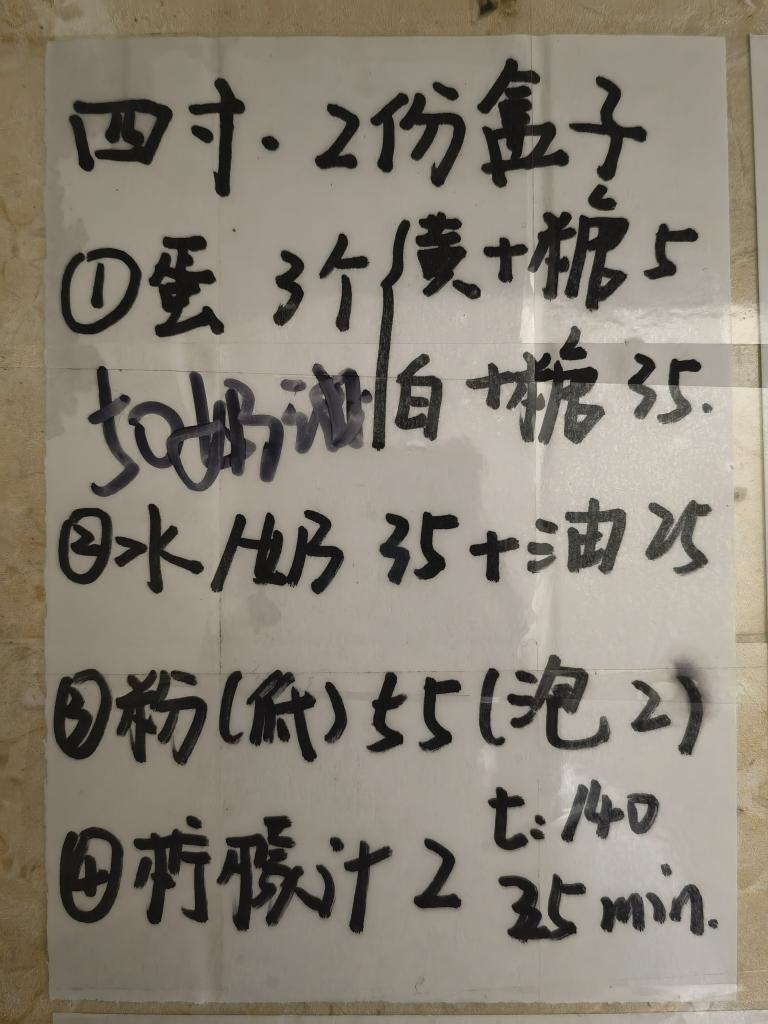 四寸.2份盒子
①蛋 3个{黄+糖5
白+糖35.
50奶油
②水/奶 35+油25
③粉(低)55(泡2)
④柠檬汁2
t:140
35min.